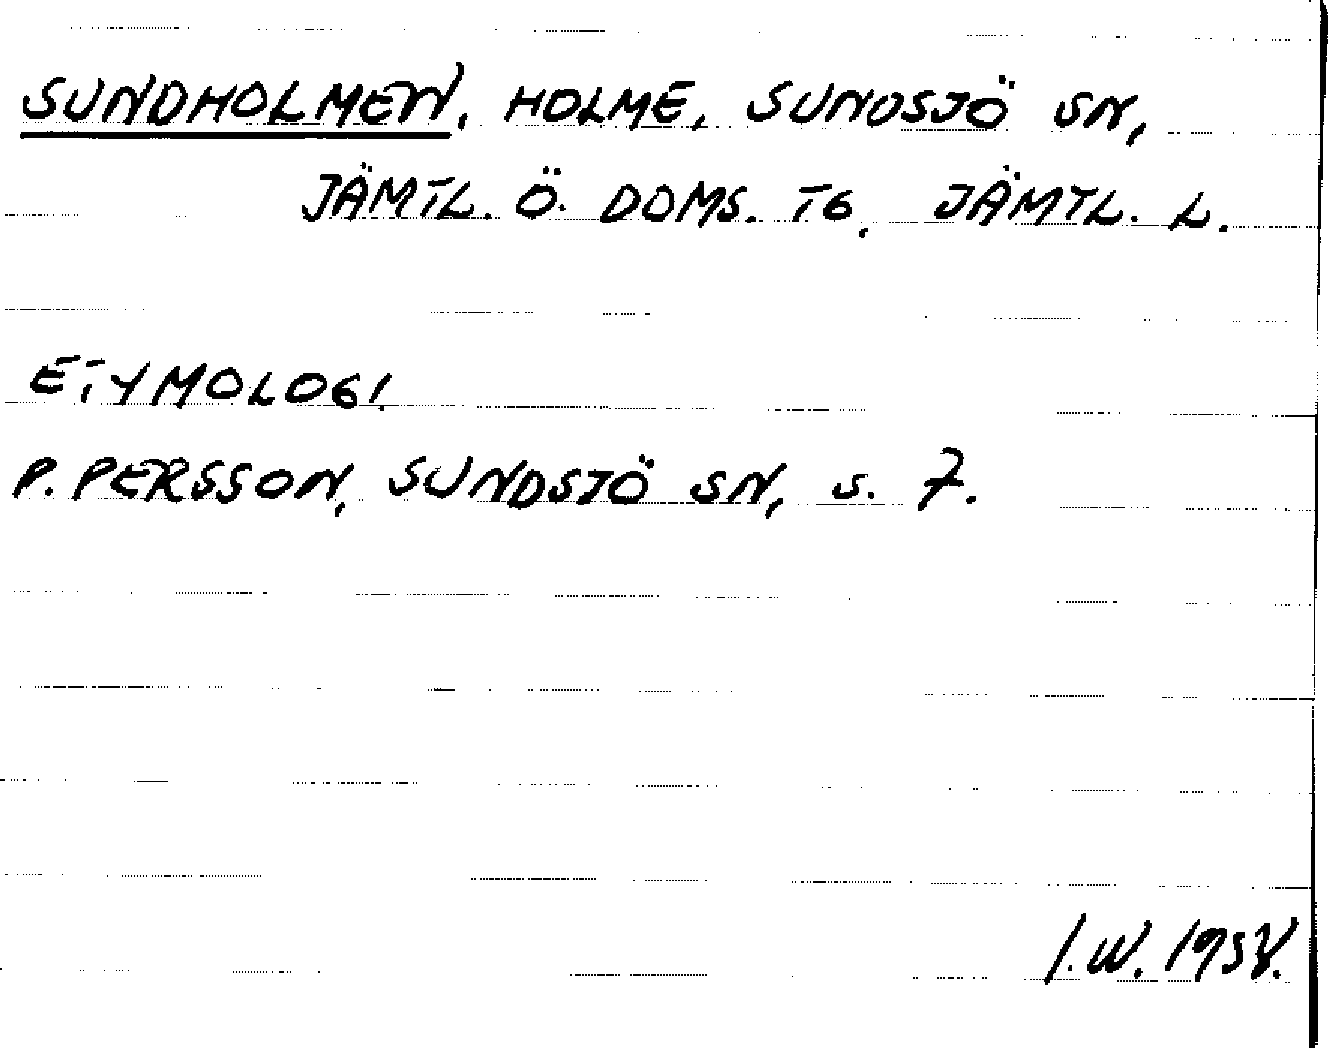 SUNDHOLMEN, HOLME, SUNDSJÖ SN,
JÄMTL. Ö. DOMS. TG, JÄMTL. L.
ETYMOLOGI
P. PERSSON, SUNDSJÖ SN, s. 7.
I.W. 1958.